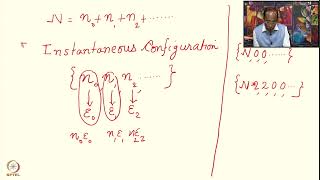 N = n₀ + n₁ + n₂ + ........
Instantaneous Configuration
{ n₀, n₁, n₂, ........ }
ε₀ ε₁ ε₂
n₀ε₀ n₁ε₁ n₂ε₂
{N, 0, 0, ......}
{N-2, 2, 0, 0, ...}
NPTEL